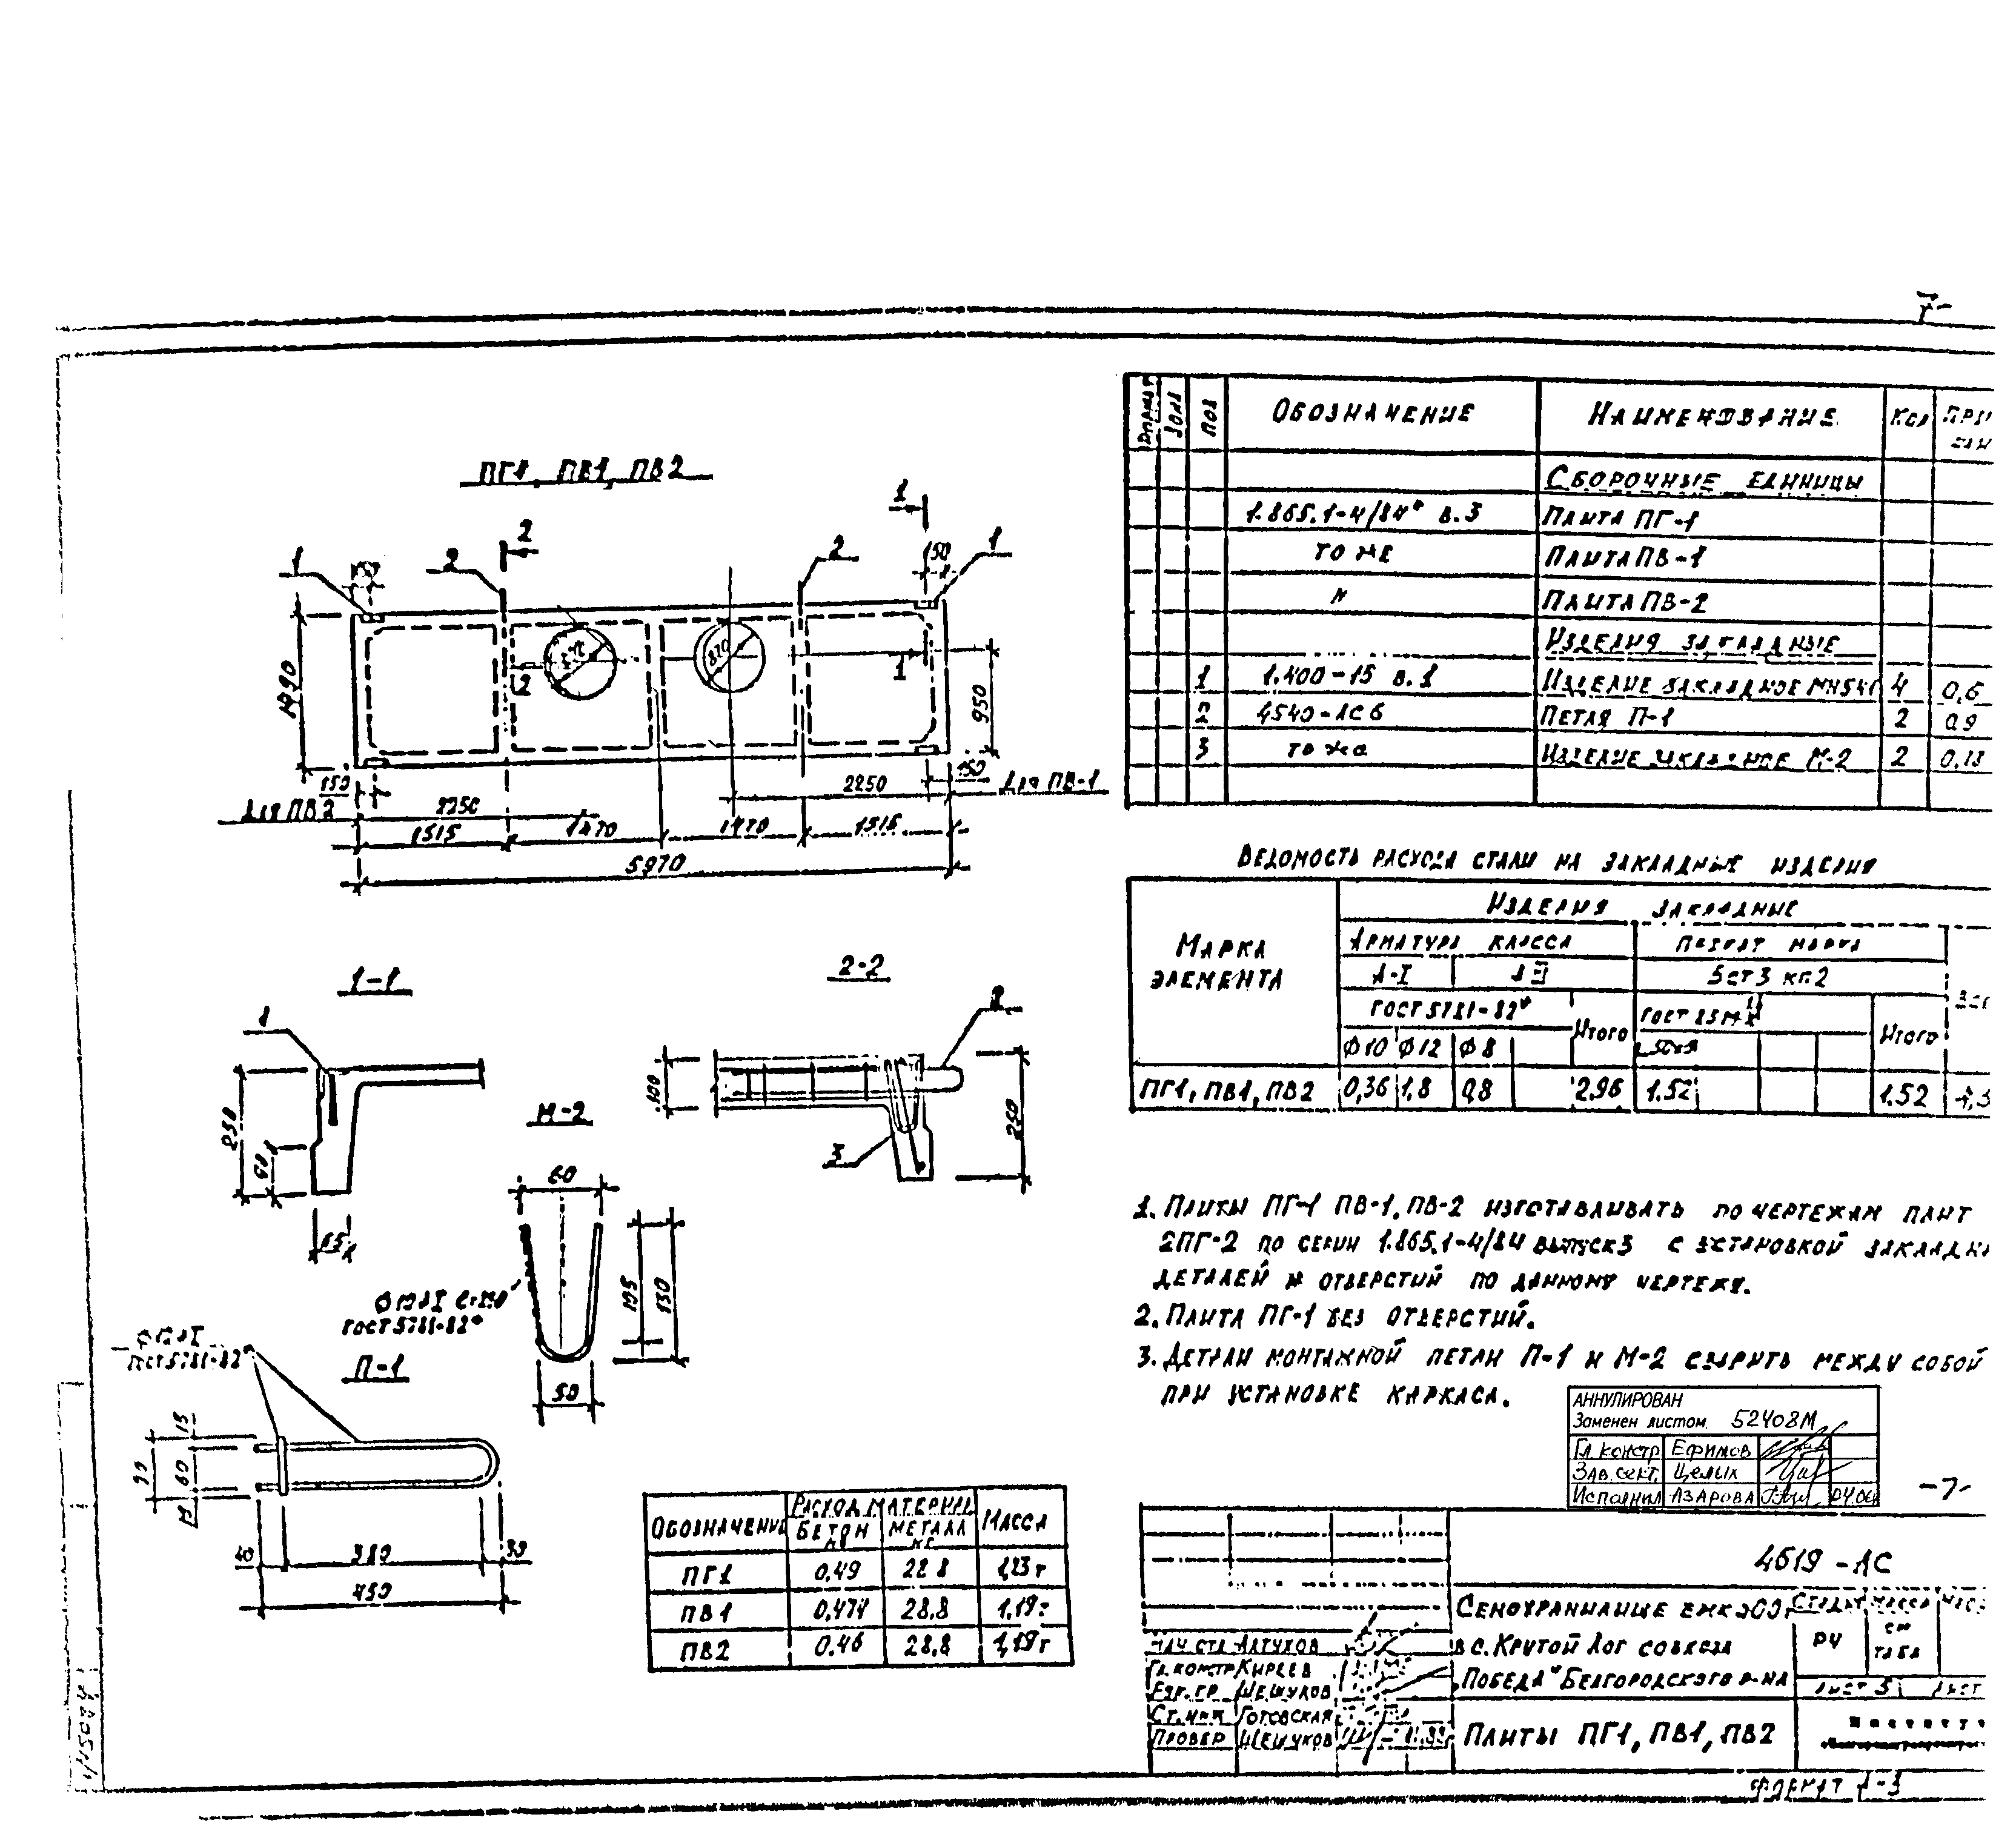 7-
ПГ1, ПВ1, ПВ2
1
2
2
1
2
50
1
1490
820
2
1
950
150
150
2250
Для ПВ-1
Для ПВ2
2250
1515
1470
1470
1515
5970
1-1
1
250
90
2-2
2
100
250
3
М-2
60
195
130
50
ГОСТ 5781-82*
П-1
ГОСТ 5781-82*
90
60
15
40
380
30
450
ОБОЗНАЧЕНИЕ
РАСХОД МАТЕРИАЛ
МАССА
БЕТОН М3
МЕТАЛЛ КГ
ПГ1 0,49 22.8 1,23 т
ПВ1 0,474 28,8 1,19т
ПВ2 0.46 28,8 1,19т
ФОРМАТ ЗОНА ПОЗ ОБОЗНАЧЕНИЕ НАИМЕНОВАНИЕ КОЛ
СБОРОЧНЫЕ ЕДИНИЦЫ
1.865.1-4/84* в.3 ПЛИТА ПГ-1
ТО ЖЕ ПЛИТА ПВ-1
ПЛИТА ПВ-2
ИЗДЕЛИЯ ЗАКЛАДНЫЕ
1 1.400-15 в.1 ИЗДЕЛИЕ ЗАКЛАДНОЕ МН541 4 0,6
2 4540-АС6 ПЕТЛЯ П-1 2 0,9
3 ТО ЖЕ ИЗДЕЛИЕ ЗАКЛАДНОЕ М-2 2 0,18
ВЕДОМОСТЬ РАСХОДА СТАЛИ НА ЗАКЛАДНЫЕ ИЗДЕЛИЯ
МАРКА ЭЛЕМЕНТА
ИЗДЕЛИЯ ЗАКЛАДНЫЕ
АРМАТУРА КЛАССА
ПРОКАТ МАРКИ
А-I А III
ВСт3 кп2
ГОСТ 5781-82*
ИТОГО
ГОСТ
ИТОГО
ϕ10 ϕ12 ϕ8
ПГ1, ПВ1, ПВ2 0,36 1,8 0,8 2,96 1.52 1.52
1. ПЛИТЫ ПГ-1 ПВ-1, ПВ-2 ИЗГОТАВЛИВАТЬ ПО ЧЕРТЕЖАМ ПЛИТ
2ПГ-2 ПО СЕРИИ 1.865.1-4/84 ВЫПУСК 3 С УСТАНОВКОЙ
ДЕТАЛЕЙ И ОТВЕРСТИЙ ПО ДАННОМУ ЧЕРТЕЖУ.
2. ПЛИТА ПГ-1 БЕЗ ОТВЕРСТИЙ.
3. ДЕТАЛИ МОНТАЖНОЙ ПЕТЛИ П-1 И М-2 СВАРИТЬ МЕЖДУ СОБОЙ
ПРИ УСТАНОВКЕ КАРКАСА.
АННУЛИРОВАН
Заменен листом 52408М
Гл. констр Ефимов
Зав. сект. Целых
Исполнил Азарова 04.06
-7-
4619-АС
СЕНОХРАНИЛИЩЕ ЕМК
В С. КРУТОЙ ЛОГ СОВХОЗА
"ПОБЕДА" БЕЛГОРОДСКОГО Р-НА
СТАДИЯ МАССА
РЧ СМ ТАБЛ
ЛИСТ 5 ЛИСТ
НАЧ. СТО АЛТУХОВ
ГЛ. КОНСТР КИРЕЕВ
РУК. ГР. ШЕШУКОВ
СТ. ИНЖ ГОТОВСКАЯ
ПРОВЕР ШЕШУКОВ
ПЛИТЫ ПГ1, ПВ1, ПВ2
ФОРМАТ А-3